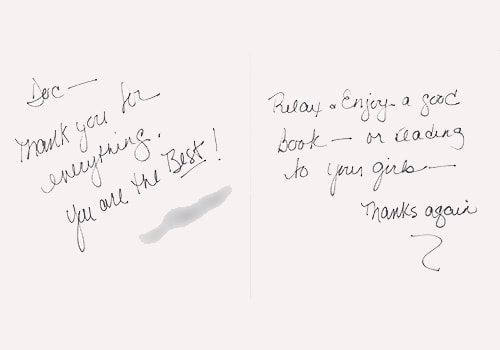 Doc —
Thank you for
everything.
You are the Best!
Relax & Enjoy a good
Book — or reading
to your girls —
Thanks again